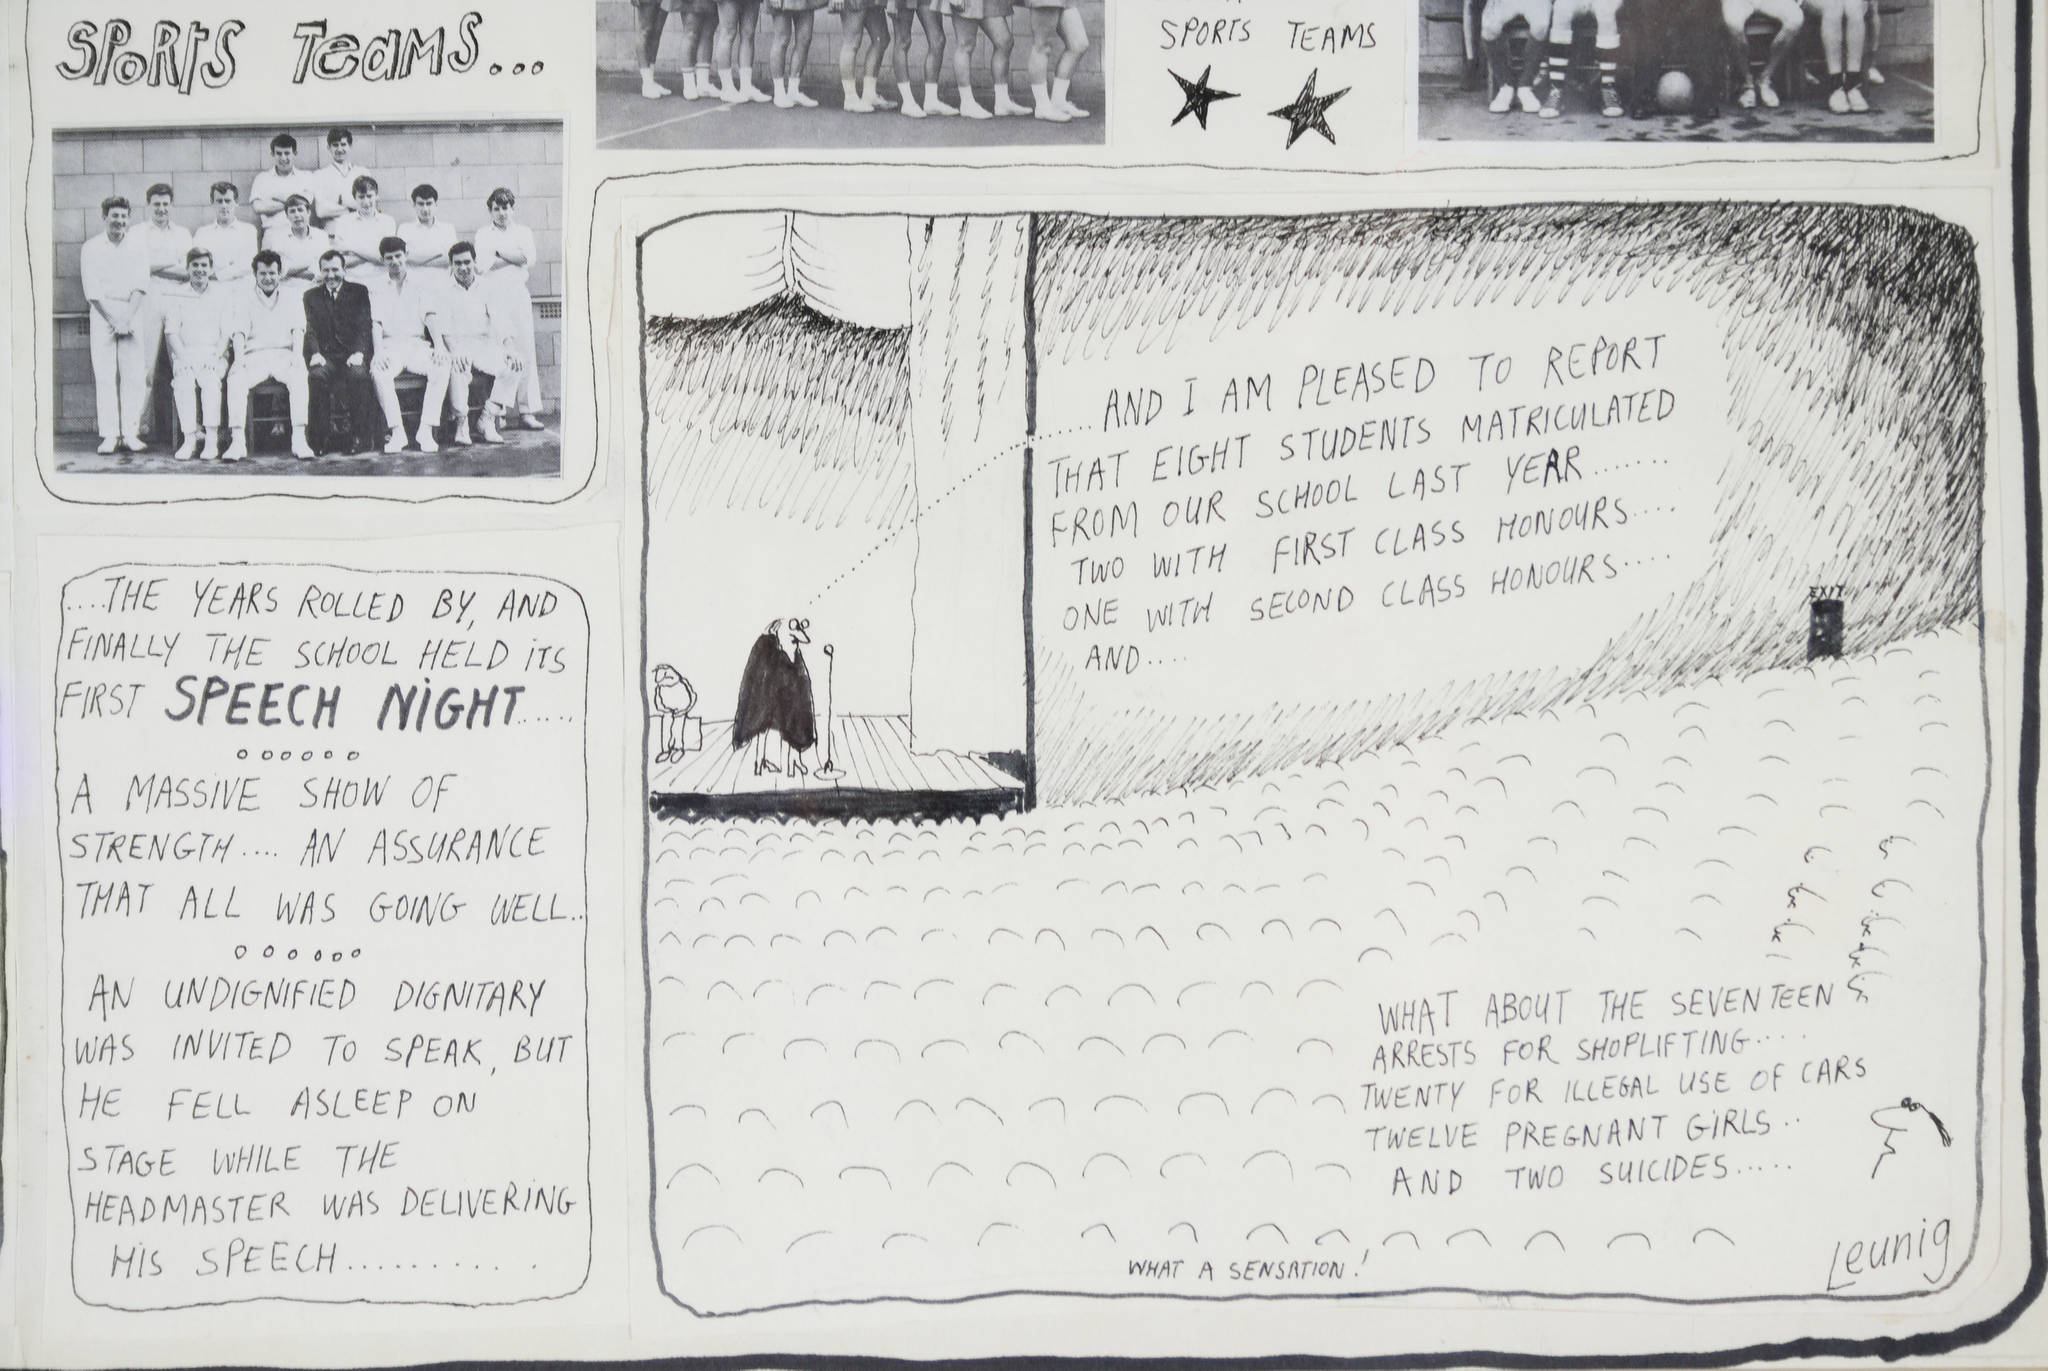 SPORTS TEAMS...
SPORTS TEAMS
....THE YEARS ROLLED BY, AND
FINALLY THE SCHOOL HELD ITS
FIRST SPEECH NIGHT.....
A MASSIVE SHOW OF
STRENGTH.... AN ASSURANCE
THAT ALL WAS GOING WELL..
AN UNDIGNIFIED DIGNITARY
WAS INVITED TO SPEAK, BUT
HE FELL ASLEEP ON
STAGE WHILE THE
HEADMASTER WAS DELIVERING
HIS SPEECH..........
....AND I AM PLEASED TO REPORT
THAT EIGHT STUDENTS MATRICULATED
FROM OUR SCHOOL LAST YEAR.......
TWO WITH FIRST CLASS HONOURS....
ONE WITH SECOND CLASS HONOURS....
AND....
EXIT
WHAT ABOUT THE SEVENTEEN
ARRESTS FOR SHOPLIFTING....
TWENTY FOR ILLEGAL USE OF CARS
TWELVE PREGNANT GIRLS..
AND TWO SUICIDES.....
WHAT A SENSATION!
Leunig